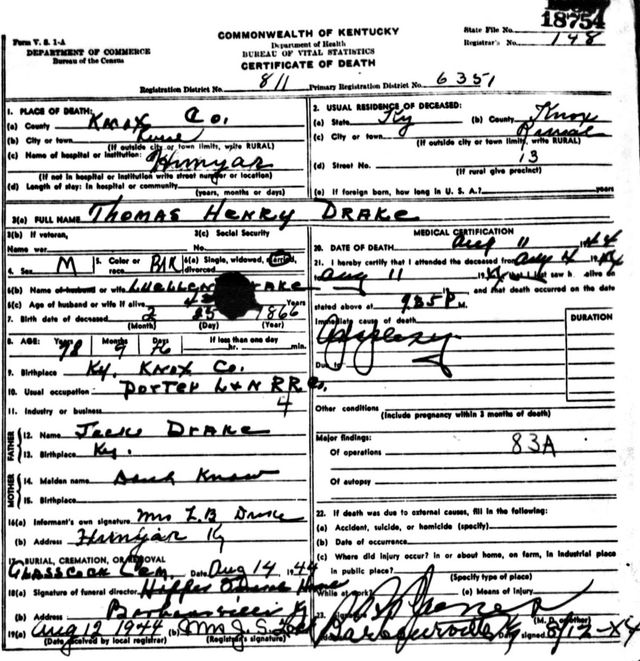 18754
Form V. S. 1-A
DEPARTMENT OF COMMERCE
Bureau of the Census
COMMONWEALTH OF KENTUCKY
Department of Health
BUREAU OF VITAL STATISTICS
CERTIFICATE OF DEATH
State File No.
Registrar's No. 148
Registration District No. 811 Primary Registration District No. 6351
1. PLACE OF DEATH:
(a) County Knox Co.
(b) City or town
(If outside city or town limits, write RURAL)
(c) Name of hospital or institution:
(If not in hospital or institution write street number or location)
(d) Length of stay: In hospital or community
(years, months or days)
2. USUAL RESIDENCE OF DECEASED:
(a) State Ky (b) County Knox
(c) City or town Rural
(If outside city or town limits, write RURAL)
(d) Street No. 13
(If rural give precinct)
(e) If foreign born, how long in U. S. A.? years
3(a) FULL NAME Thomas Henry Drake
3(b) If veteran,
Name war
3(c) Social Security
No.
4. Sex M 5. Color or race 6(a) Single, widowed, married, divorced
6(b) Name of husband or wife
6(c) Age of husband or wife if alive Years
7. Birth date of deceased 2 1866
(Month) (Day) (Year)
8. AGE: Years 78 Months Days If less than one day
hr. min.
9. Birthplace Ky. Knox Co.
10. Usual occupation Porter L&N RR Co.
11. Industry or business
FATHER
12. Name Drake
13. Birthplace Ky.
MOTHER
14. Maiden name Know
15. Birthplace
16(a) Informant's own signature Mrs L B Drake
(b) Address Ky
17 BURIAL, CREMATION, OR REMOVAL
Glasscock Cem. Date Aug 14 1944
18(a) Signature of funeral director
(b) Address Barbourville Ky
19(a) Aug 12 1944 (b) Mrs J. S.
(Date received by local registrar) (Registrar's signature)
MEDICAL CERTIFICATION
20. DATE OF DEATH Aug 11 1944
21. I hereby certify that I attended the deceased from Aug 4
Aug 11 alive on
and that death occurred on the date
stated above at 9:35 P M.
Immediate cause of death DURATION
Apoplexy
Due to
Other conditions
(Include pregnancy within 3 months of death)
Major findings: 83A
Of operations
Of autopsy
22. If death was due to external causes, fill in the following:
(a) Accident, suicide, or homicide (specify)
(b) Date of occurrence
(c) Where did injury occur? in or about home, on farm, in industrial place
in public place?
(Specify type of place)
While at work? (e) Means of injury
(M. D. or other)
Barbourville Ky signed 8/12-44